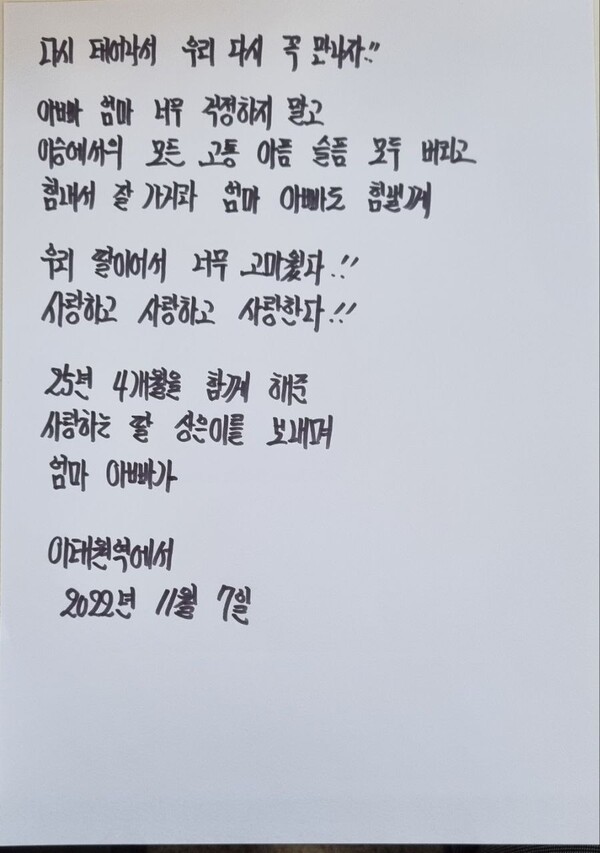 다시 태어나서 우리 다시 꼭 만나자!!
아빠 엄마 너무 걱정하지 말고
이승에서의 모든 고통 아픔 슬픔 모두 버리고
힘내서 잘 가거라 엄마 아빠도 힘낼께
우리 딸이어서 너무 고마웠다!!
사랑하고 사랑하고 사랑한다!!
25년 4개월을 함께 해준
사랑하는 딸 상은이를 보내며
엄마 아빠가
이태원역에서
2022년 11월 7일